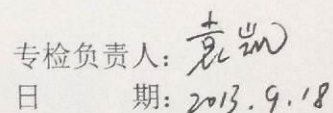 专检负责人：袁凯
日 期：2013.9.18